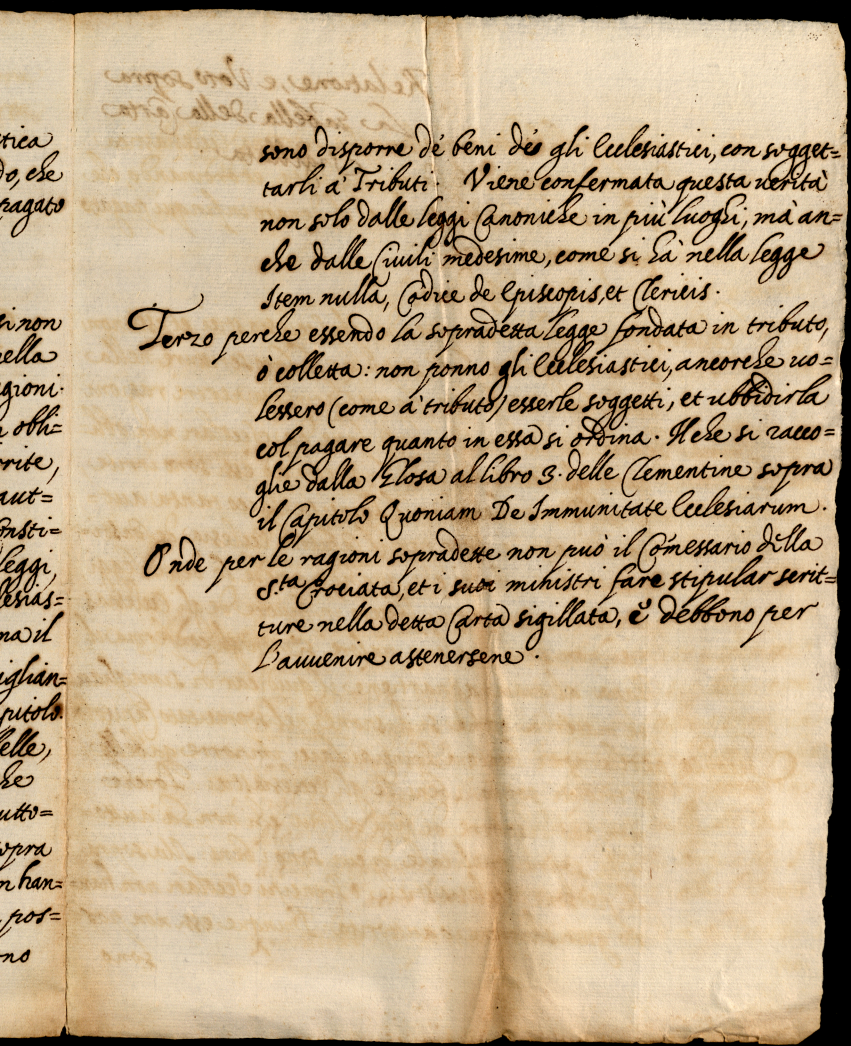 tica
do, che
pagato
si non
nella
agioni.
obli=
rite,
aut=
onsti=
leggi,
lesias=
ma il
iglian=
pitolo.
elle,
he
utto=
sopra
n han=
pos=
no
sono disporre dè beni dèo gli Ecclesiastici, con sogget=
tarli à Tributi. Viene confermata questa uerità
non solo dalle leggi Canoniche in più luoghi, mà an=
che dalle Ciuili medesime, come si hà nella legge
Item nulla, Codice de Episcopis, et Clericis.
Terzo perche essendo la sopradetta legge fondata in tributo,
ò colletta: non ponno gli Ecclesiastici, ancorche uo=
lessero (come à tributo) esserle soggetti, et ubbidirla
col pagare quanto in essa si ordina. Il che si racco=
glie dalla Glosa al libro 3. delle Clementine sopra
il Capitolo Quoniam De Immunitate Ecclesiarum.
Onde per le ragioni sopradette non può il Comessario della
S.ta Crociata, et i suoi ministri fare stipular scrit=
ture nella detta Carta sigillata, è debbono per
l'auuenire astenersene.